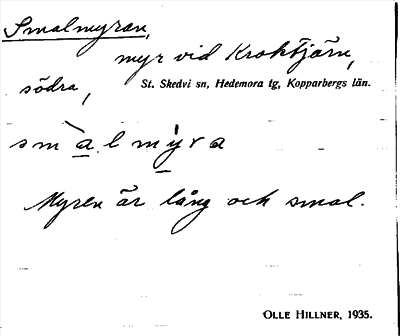 Smalmyran,
myr vid Kroktjärn,
södra,
St. Skedvi sn, Hedemora tg, Kopparbergs län.
smàlmỳra
Myren är lång och smal.
OLLE HILLNER, 1935.